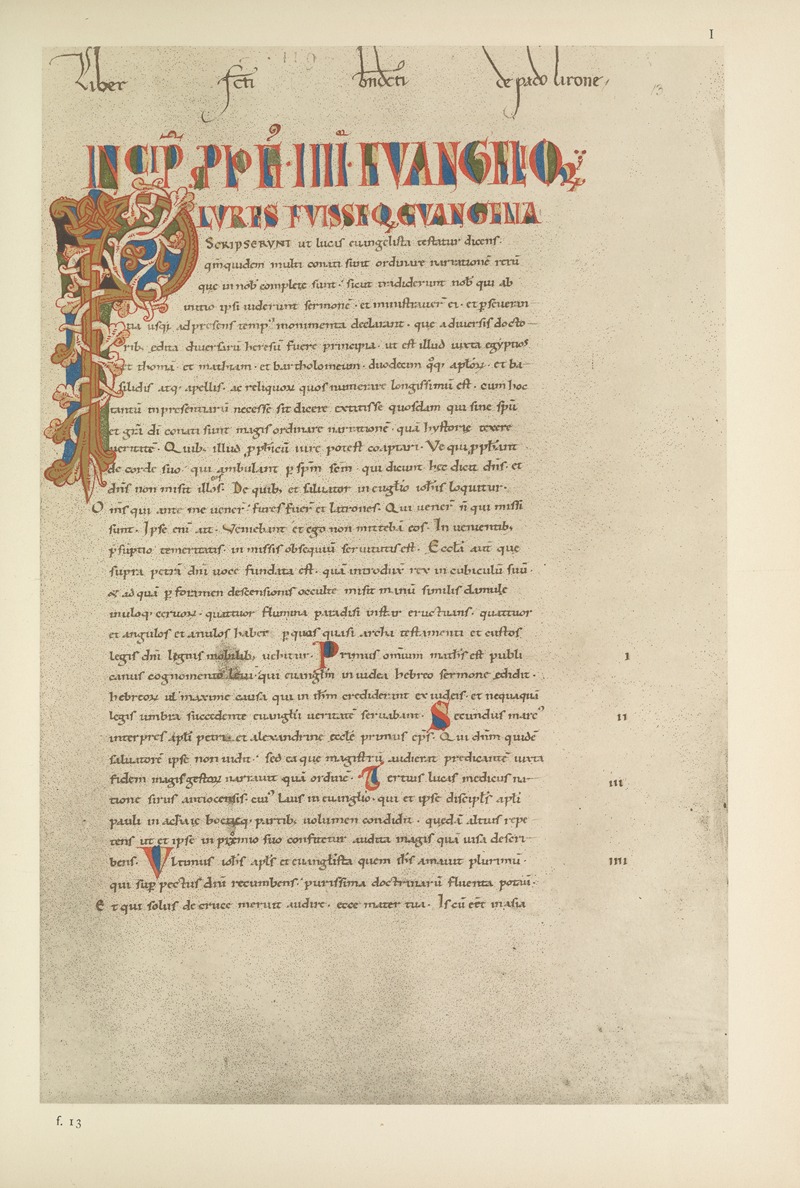 I
Liber scti bndcti de pado lirone
13
INCIP PPHE IIII EVANGELIOꝜ
PLVRES FVISSE Q̨ EVANGELIA
SCRIPSERVNT ut lucas euuangelista testatur dicens.
qm̄quidem multi conati sunt ordinare narrationē rerū
que in nob̄ complete sunt. sicut tradiderunt nob̄ qui ab
initio ipsi uiderunt sermonē. et ministrauer̄ ei. et pseueran
tia usq; ad presens temp9 monimenta declarant. que a diuersis docto
rib; edita diuersarū heresū fuere principia. ut est illud iuxta egyptios
et thomā. et mathiam. et bartholomeum. duodecim qq; aploꝝ. et ba
silidis atq; apellis. ac reliquoꝝ quos numerare longissimū est. cum hoc
tantū in presentiarū necesse sit dicere extitisse quosdam qui sine spū
et grā dī conati sunt magis ordinare narrationē. quā hystorie texere
ueritatē. Quib; illud pphicū iure potest coaptari. Ve qui pphānt
de corde suo. qui ambulant p spm̄ sēm. qui dicunt hec dicit dn̄s. et
dn̄s non misit illos. De quib; et saluator in euglio iohis loquitur.
Om̄s qui ante me uener̄ fures fuer̄ et latrones. Qui uener̄ n̄ qui missi
sunt. Ipse enī ait. Veniebant et ego non mittebā eos. In uenientib;
p̄suptio temeritatis. in missis obsequiū seruitutis est. Ecclā autē que
supra petrā dn̄i uoce fundata est. quā introdux̄ rex in cubiculū suū.
& ad quā p foramen descensionis occulte misit manū similis damule
inuloq; ceruoꝝ. quattuor flumina paradisi instar eructans. quattuor
et angulos et anulos haber̄ p quas quasi archa testamenti et custos
legis dn̄i lignis mobilib; uehitur. Primus omium matheus est publi
I
canus cognomento leui qui euanglm̄ in iudea hebreo sermone edidit.
hebreoꝝ uel maxime causa qui in ihm̄ crediderant ex iudeis. et nequaquā
legis umbra succedente euanglii ueritatē seruabant. Secundus marc9
II
interpres apli petri et alexandrine eccle primus eps̄. Qui dn̄m quidē
saluatorē ipse non uidit. sed ea que magistrū audierat predicantē iuxta
fidem magis gestoꝝ narrauit quā ordinē. Tertius lucas medicus na
III
tione sirus antiocensis. cui9 laus in euanglio. qui et ipse discipls̄ apli
pauli in achaie boetieq; partib; uolumen condidit. quedā altius repe
tens ut et ipse in prohemio suo confitetur audita magis quā uisa descri
bens. Vltimus iohs̄ apls̄ et euanglista quem ihs̄ amauit plurimū.
IIII
qui sup pectus dn̄i recumbens. purissima doctrinarū fluenta potauit.
Et qui solus de cruce meruit audire. ecce mater tua. Is cū eēt in asia
f. 13